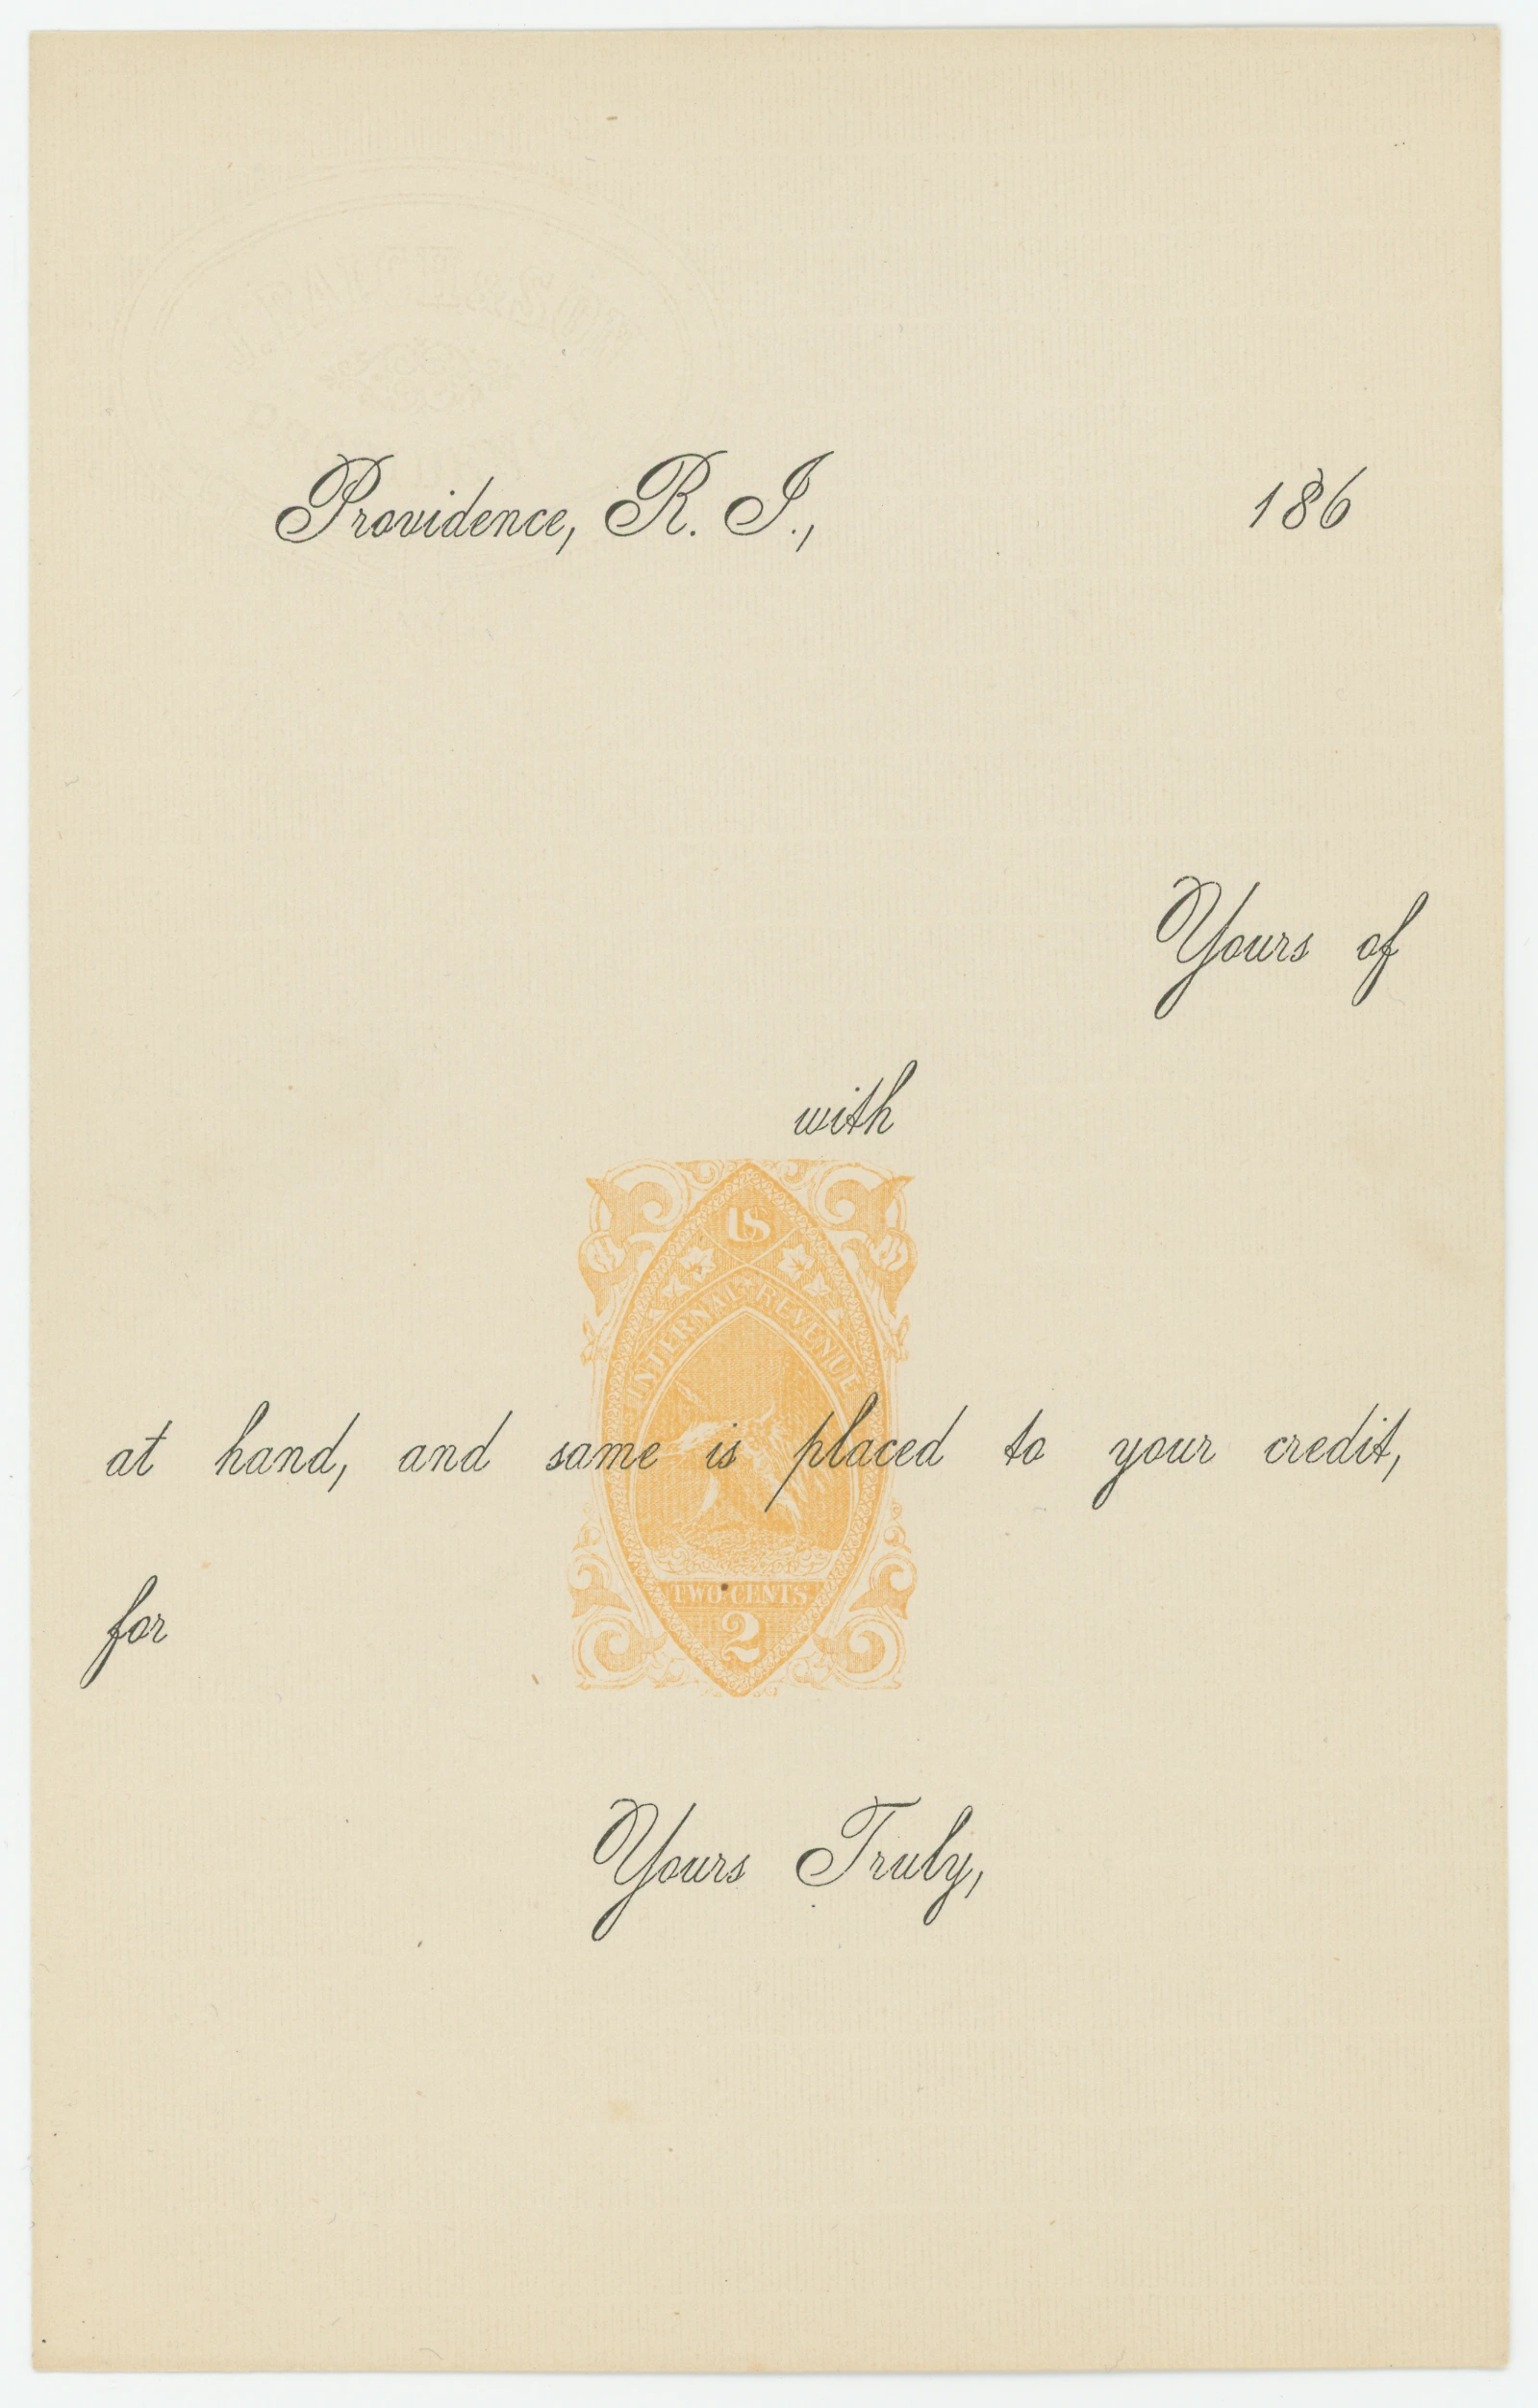 Providence, R. I., 186
Yours of
with
US
INTERNAL REVENUE
at hand, and same is placed to your credit,
TWO CENTS
2
for
Yours Truly,